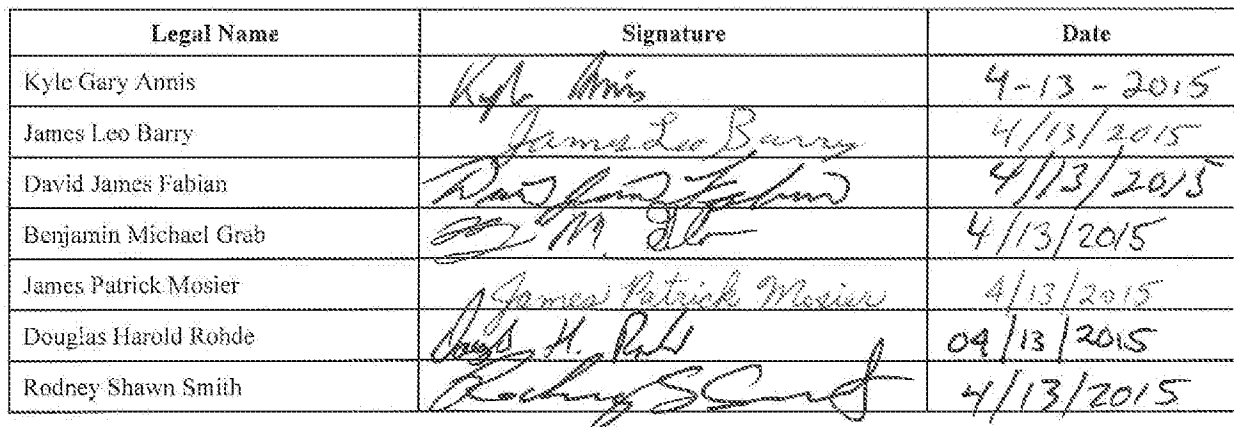 Legal Name Signature Date
Kyle Gary Annis Kyle Annis 4-13-2015
James Leo Barry James Leo Barry 4/13/2015
David James Fabian David James Fabian 4/13/2015
Benjamin Michael Grab M. 4/13/2015
James Patrick Mosier James Patrick Mosier 4/13/2015
Douglas Harold Rohde H. 04/13/2015
Rodney Shawn Smith Rodney S Smith 4/13/2015